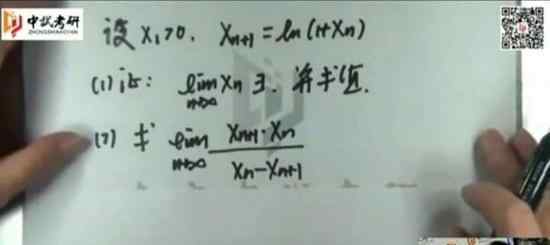 中试考研
ZHONGSHIKAOYAN
设 X₁>0, Xₙ₊₁ = ln(1+Xₙ)
(1) 证: lim Xₙ ∃, 并求值.
n→∞
(2) 求 lim Xₙ₊₁·Xₙ
n→∞ Xₙ-Xₙ₊₁